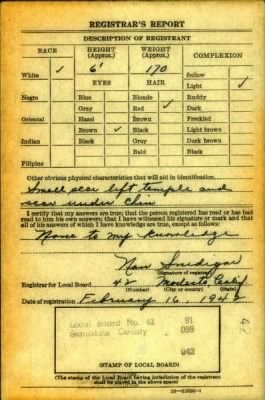 REGISTRAR'S REPORT
DESCRIPTION OF REGISTRANT
RACE HEIGHT (Approx.) WEIGHT (Approx.) COMPLEXION
White ✓ 6' 170 Sallow
EYES HAIR Light ✓
Negro Blue Blonde Ruddy
Gray Red ✓ Dark
Oriental Hazel Brown Freckled
Brown ✓ Black Light brown
Indian Black Gray Dark brown
Bald Black
Filipino
Other obvious physical characteristics that will aid in identification
Small scar left temple and
scar under Chin
I certify that my answers are true; that the person registered has read or has had
read to him his own answers; that I have witnessed his signature or mark and that
all of his answers of which I have knowledge are true, except as follows:
None to my knowledge
(Signature of registrar)
Registrar for Local Board 42 Modesto, Calif
(Number) (City or county) (State)
Date of registration February 16, 1942
Local Board No. 42 91
Stanislaus County 099
042
42
(STAMP OF LOCAL BOARD)
(The stamp of the Local Board having jurisdiction of the registrant
shall be placed in the above space)